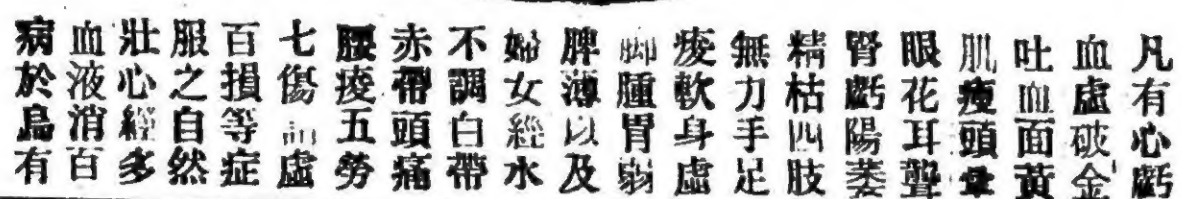 凡有心虧
血虛破金
吐血面黃
肌瘦頭暈
眼花耳聾
腎虧陽萎
精枯四肢
無力手足
痠軟身虛
脚腫胃弱
脾薄以及
婦女經水
不調白帶
赤帶頭痛
腰痠五勞
七傷虛
百損等症
服之自然
壯心經多
血液消百
病於烏有